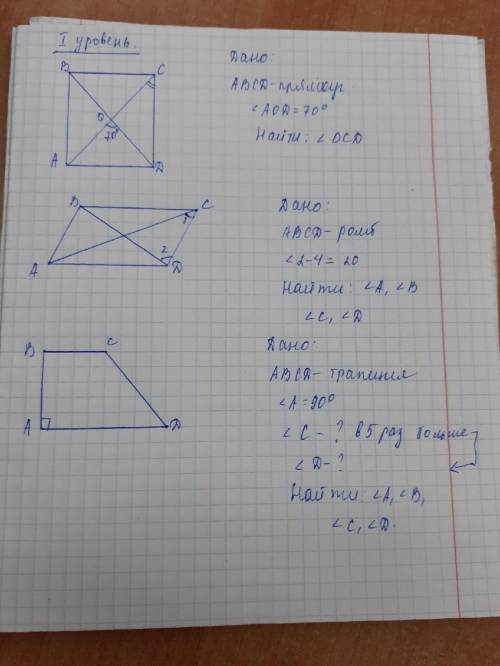 I уровень.
B
C
O
70°
A
D
Дано:
ABCD-прямоуг
∠AOD=70°
Найти: ∠OCD
B
C
1
2
A
D
Дано:
ABCD-ромб
∠2-1=20
Найти: ∠A, ∠B
∠C, ∠D
B
C
A
D
Дано:
ABCD-трапеция
∠A=90°
∠C-? в 5 раз больше
∠D-?
Найти: ∠A, ∠B,
∠C, ∠D.